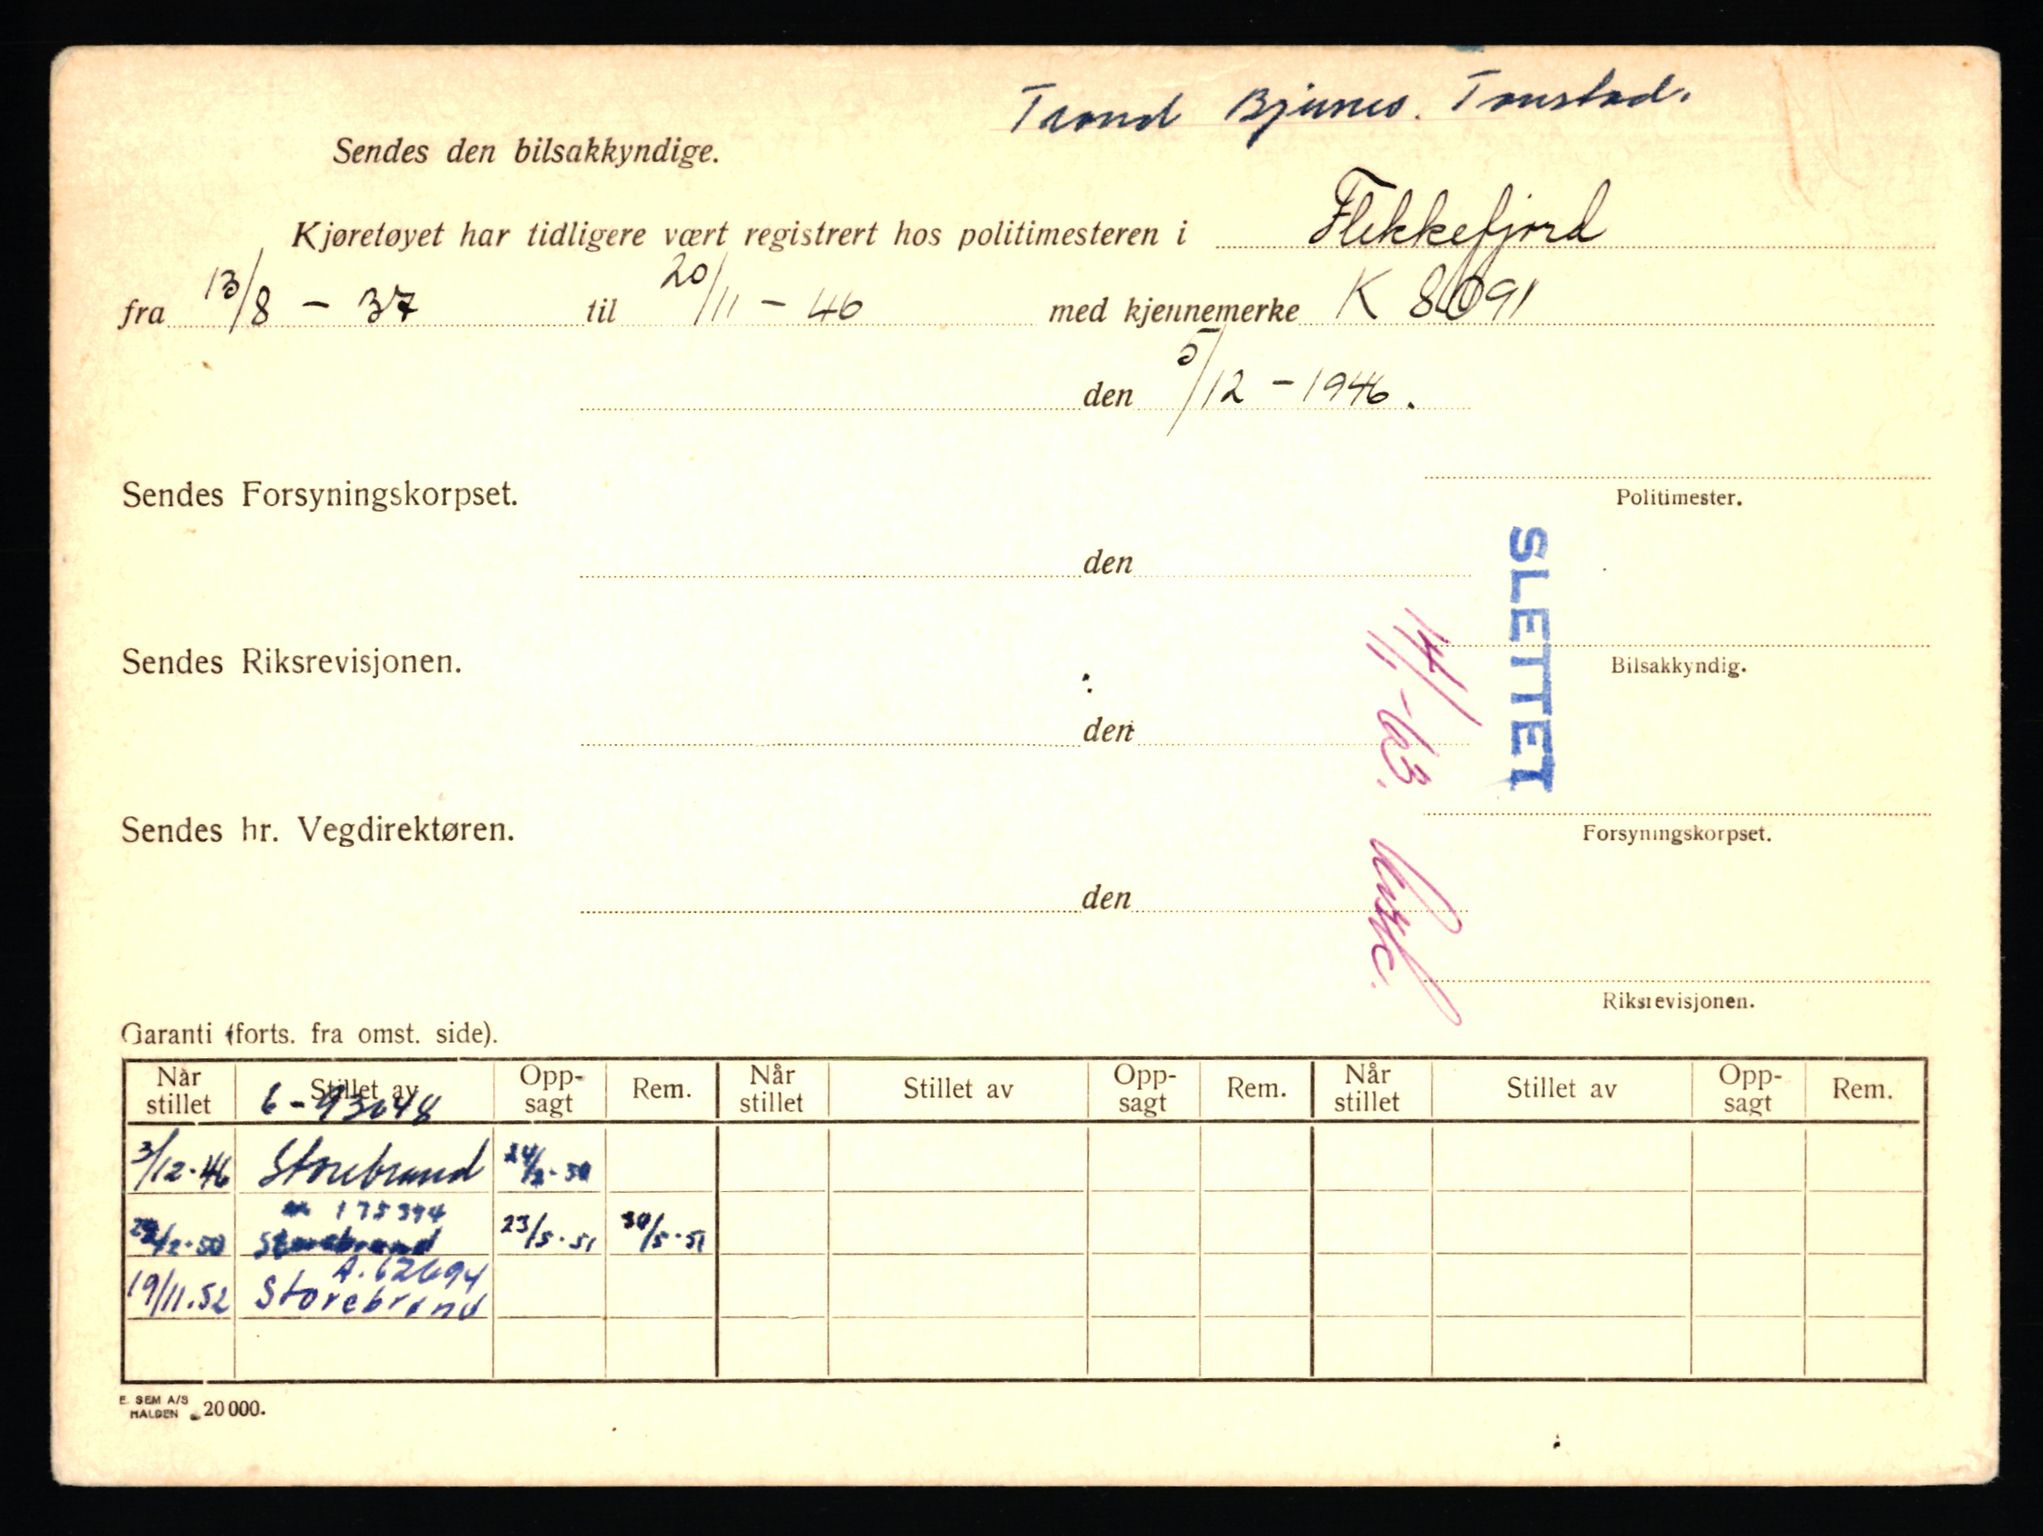 Trond Bjunes. Tonstad.
Sendes den bilsakkyndige.
Kjøretøyet har tidligere vært registrert hos politimesteren i Flekkefjord
fra 13/8 - 37 til 20/11 - 46 med kjennemerke K 8091
den 5/12 - 1946.
Sendes Forsyningskorpset.
Politimester.
den
SLETTET
14/1-63.
Sendes Riksrevisjonen.
Bilsakkyndig.
den
Sendes hr. Vegdirektøren.
Forsyningskorpset.
den
Riksrevisjonen.
Garanti (forts. fra omst. side).
Når stillet Stillet av Opp-sagt Rem. Når stillet Stillet av Opp-sagt Rem. Når stillet Stillet av Opp-sagt Rem.
6-93048
3/12-46 Storebrand 24/2-50
175394
24/2-50 Storebrand 23/5-51 30/5-51
A. 62694
19/11.52 Storebrand
E. SEM A/S
HALDEN 20 000.